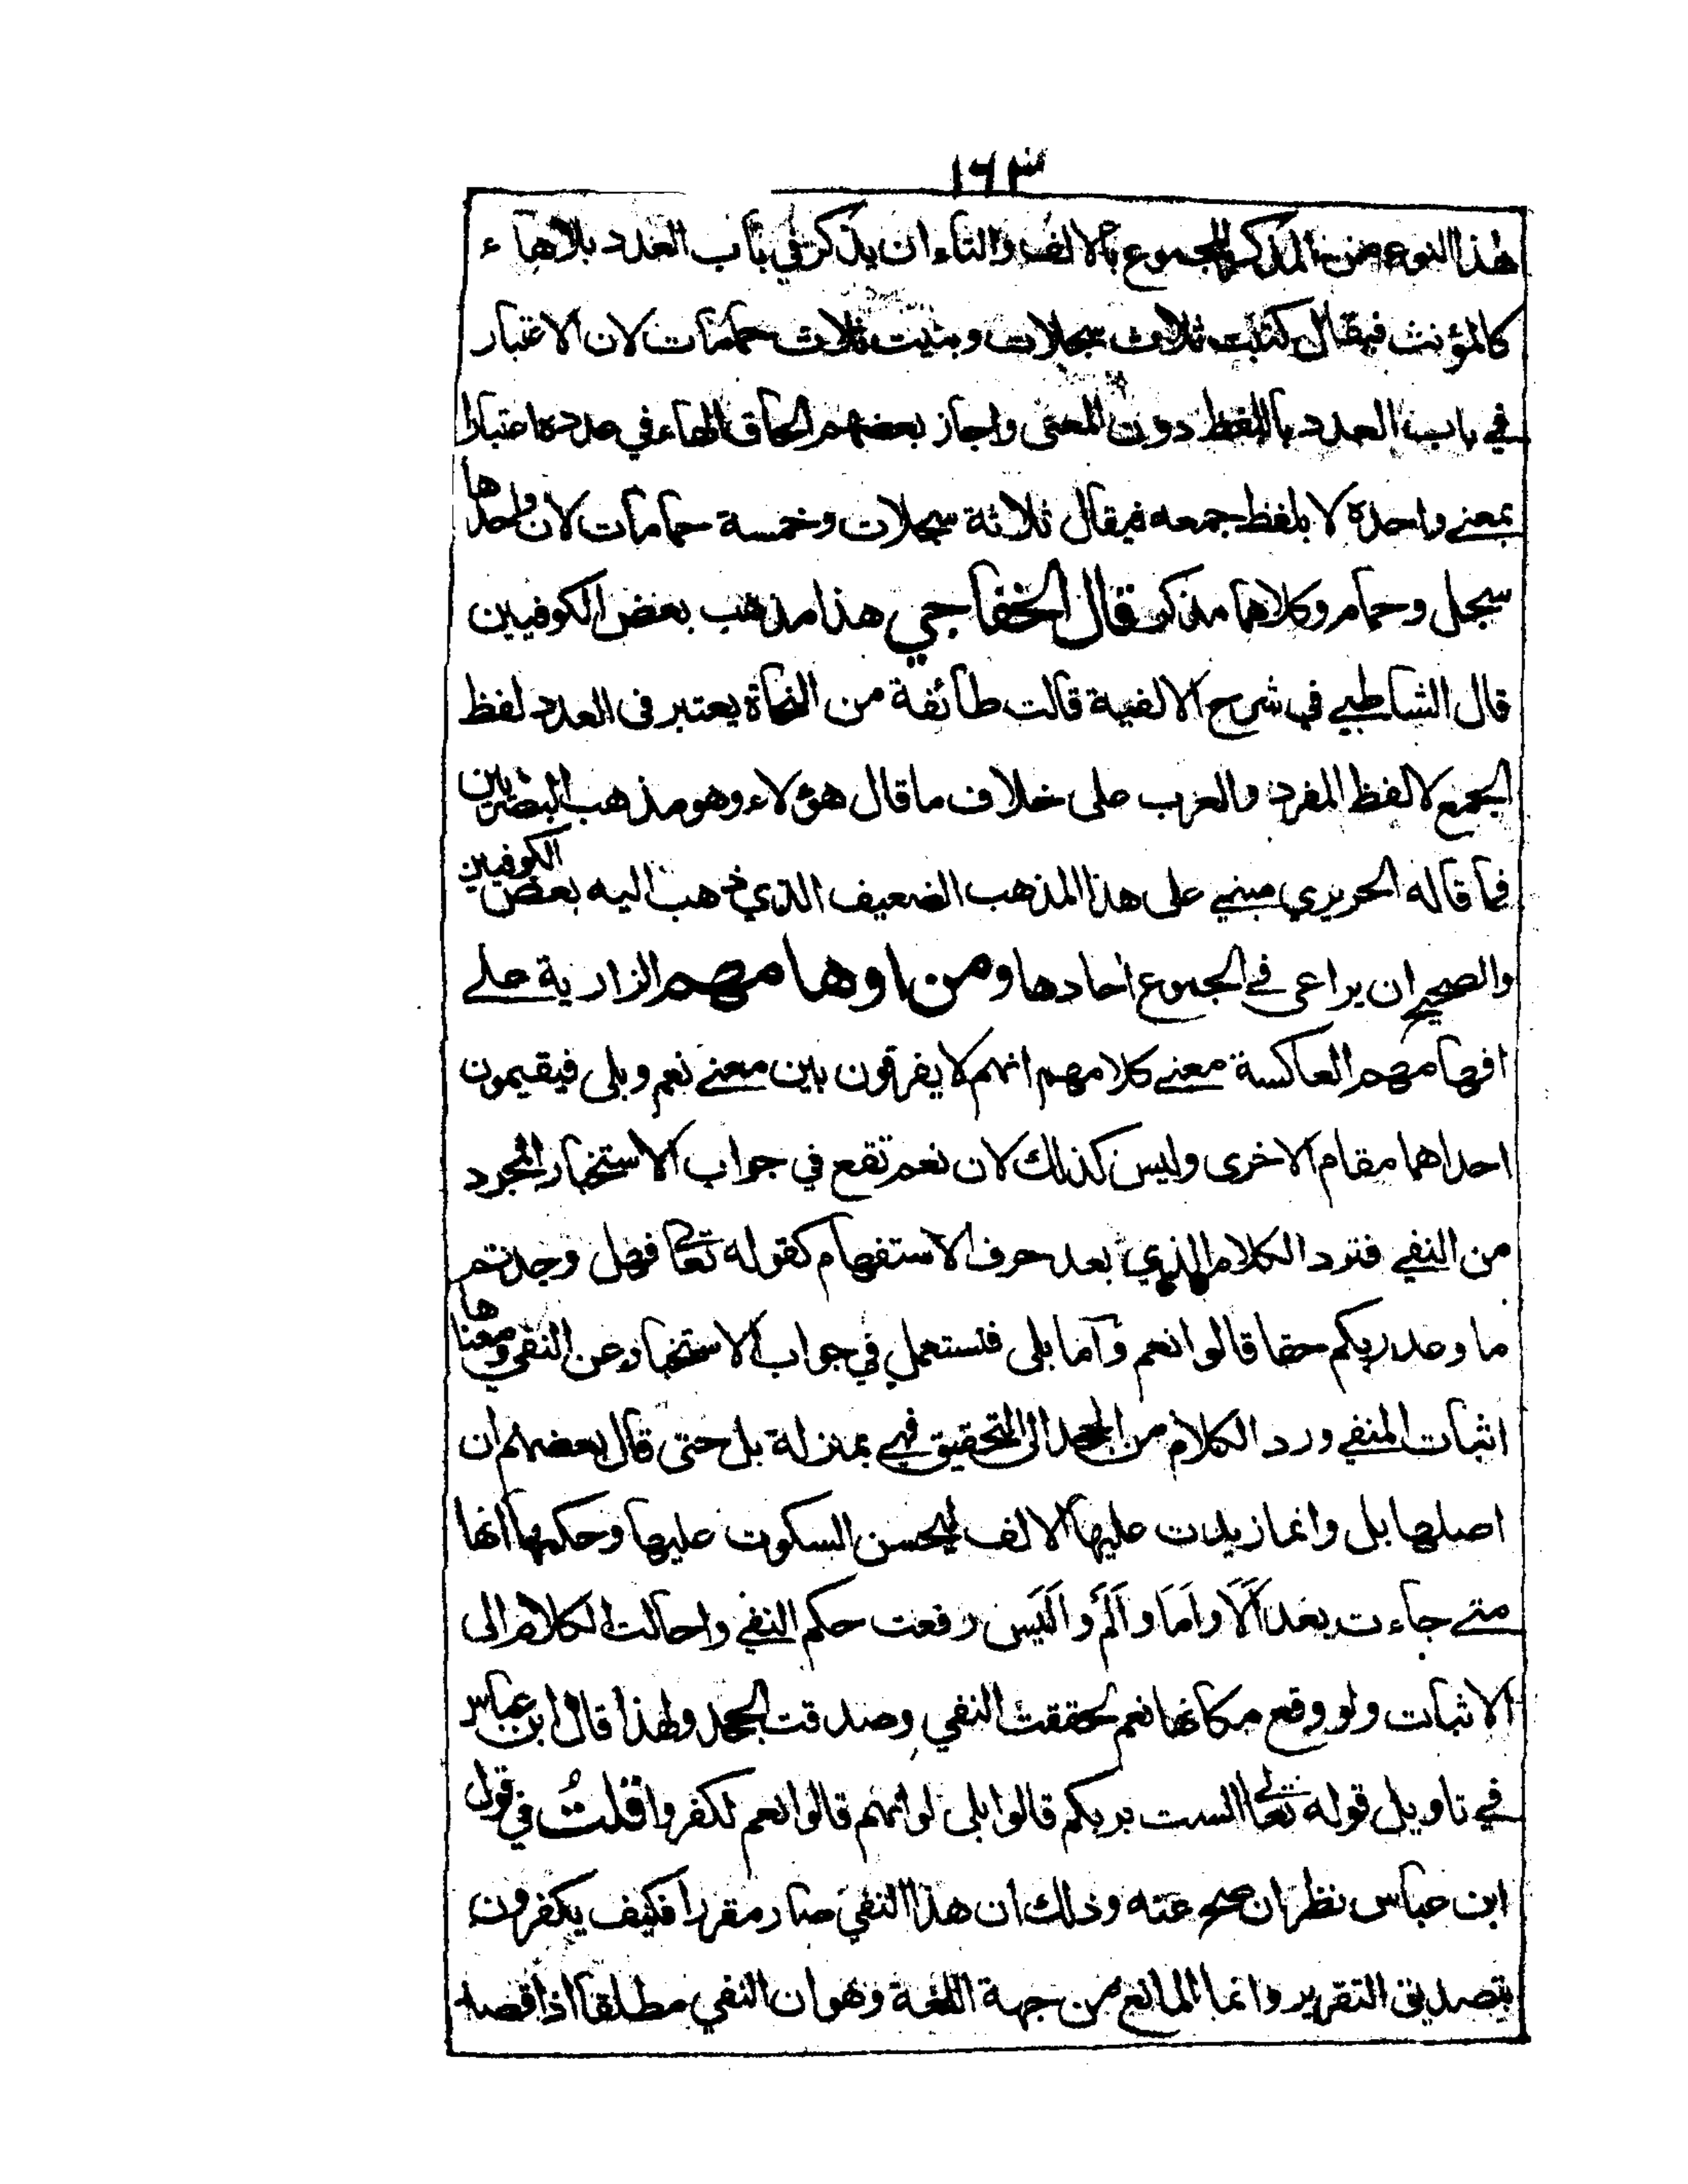 ١٦٣
هذا النوع من المذكر المجموع بالالف والتاء ان يذكر في باب العدد بلا هاء
كالمؤنث فيقال كتبت ثلاث سجلات وبنيت ثلاث حمامات لان الاعتبار
في باب العدد باللفظ دون المعنى واجاز بعضهم الحاق الهاء في عدده اعتبارا
بمعنى واحده لا بلفظ جمعه فيقال ثلاثة سجلات وخمسة حمامات لان واحدها
سجل وحمام وكلاهما مذكر قال الخفاجي هذا مذهب بعض الكوفيين
قال الشاطبي في شرح الالفية قالت طائفة من النحاة يعتبر في العدد لفظ
الجمع لا لفظ المفرد والعرب على خلاف ما قال هؤلاء وهو مذهب البصريين
فما قاله الحريري مبني على هذا المذهب الضعيف الذي ذهب اليه بعض الكوفيين
والصحيح ان يراعى في الجموع احادها ومن اوهامهم الزارية على
افهامهم العاكسة معنى كلامهم انهم لا يفرقون بين معنى نعم وبلى فيقيمون
احداهما مقام الاخرى وليس كذلك لان نعم تقع في جواب الاستخبار المجرد
من النفي فترد الكلام الذي بعد حرف الاستفهام كقوله تعالى فهل وجدتم
ما وعد ربكم حقا قالوا نعم وآما بلى فتستعمل في جواب الاستخبار عن النفي ومعناها
اثبات المنفي ورد الكلام من الجحد الى التحقيق فهي بمنزلة بل حتى قال بعضهم ان
اصلها بل وانما زيدت عليها الالف ليحسن السكوت عليها وحكمها انها
متى جاءت بعد اَلَا واَمَا واَلَمْ واَلَيس رفعت حكم النفي واحالت الكلام الى
الاثبات ولو وقع مكانها نعم لحققت النفي وصدقت الجحد ولهذا قال ابن عباس
في تاويل قوله تعالى الست بربكم قالوا بلى لو انهم قالوا نعم لكفروا قلتُ في قول
ابن عباس نظر ان صح عنه وذلك ان هذا النفي صار مقررا فكيف يكفرون
بتصديق التقرير وانما المانع من جهة اللغة وهو ان النفي مطلقا اذا قصد